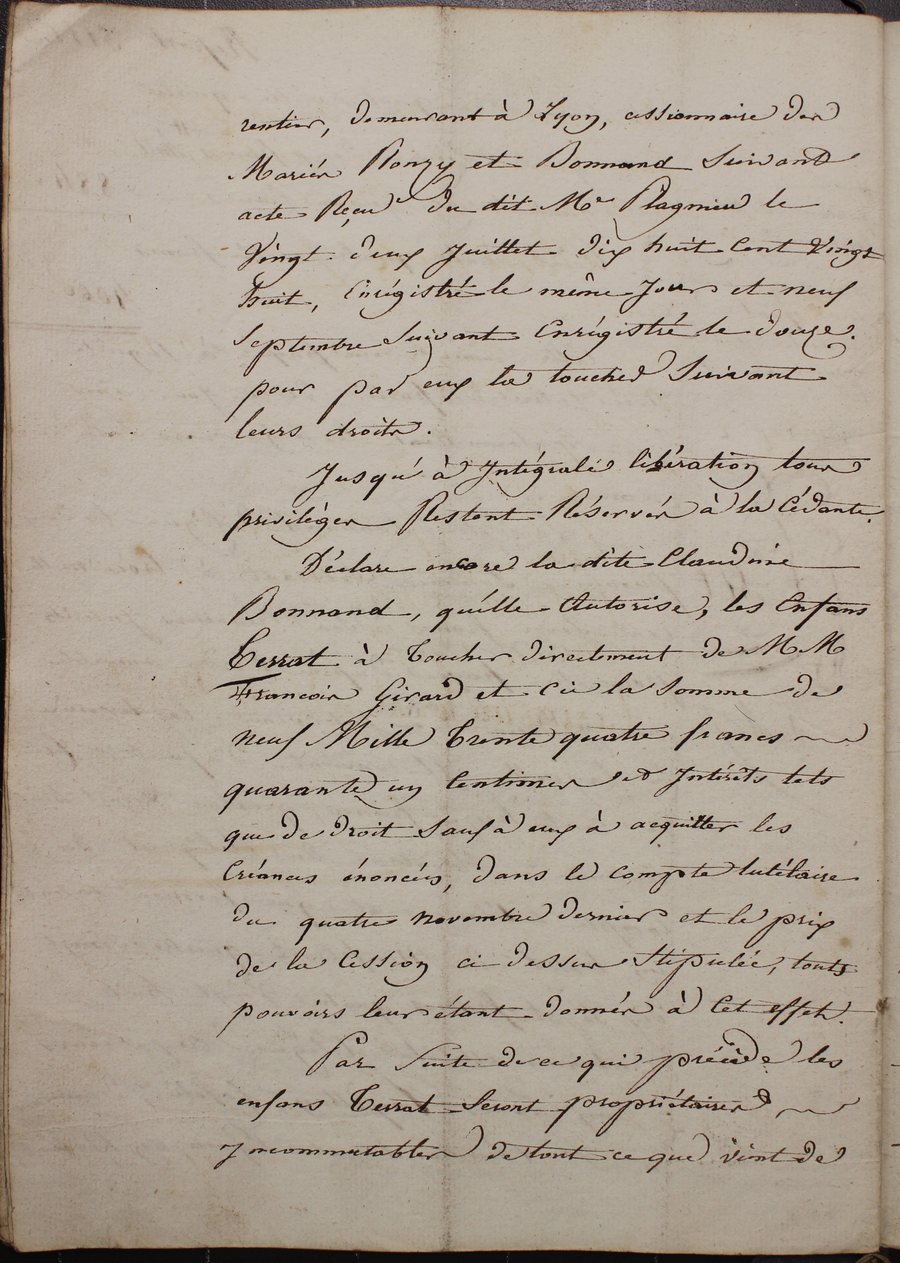 rentier, demeurant à Lyon, cessionnaire des
Mariés Ronzy et Bonnand Suivant
acte Reçu du dit Me Plagnieu le
Vingt deux Juillet dix huit Cent Vingt
huit, Enrégistré le même Jour et neuf
Septembre Suivant Enrégistré le douze.
pour par eux la toucher Suivant
leurs droits.
Jusqu'à Intégrale libération tous
privilèges Restent Réservés à la Cédante.
Déclare encore la dite Claudine
Bonnand, qu'elle Autorise, les Enfans
Terrat à Toucher directement de MM
François Girard et Cie la Somme de
neuf Mille Trente quatre francs
quarante un Centimes et Intérêts tels
que de droit Sauf à eux à acquitter les
Créances énoncées, dans le Compte tutélaire
du quatre novembre dernier et le prix
de la Cession ci dessus Stipulée, touts
pouvoirs leur étant donnés à Cet effet.
Par Suite de ce qui précède les
enfans Terrat Seront propriétaires
Incommutables de tout ce que vint de